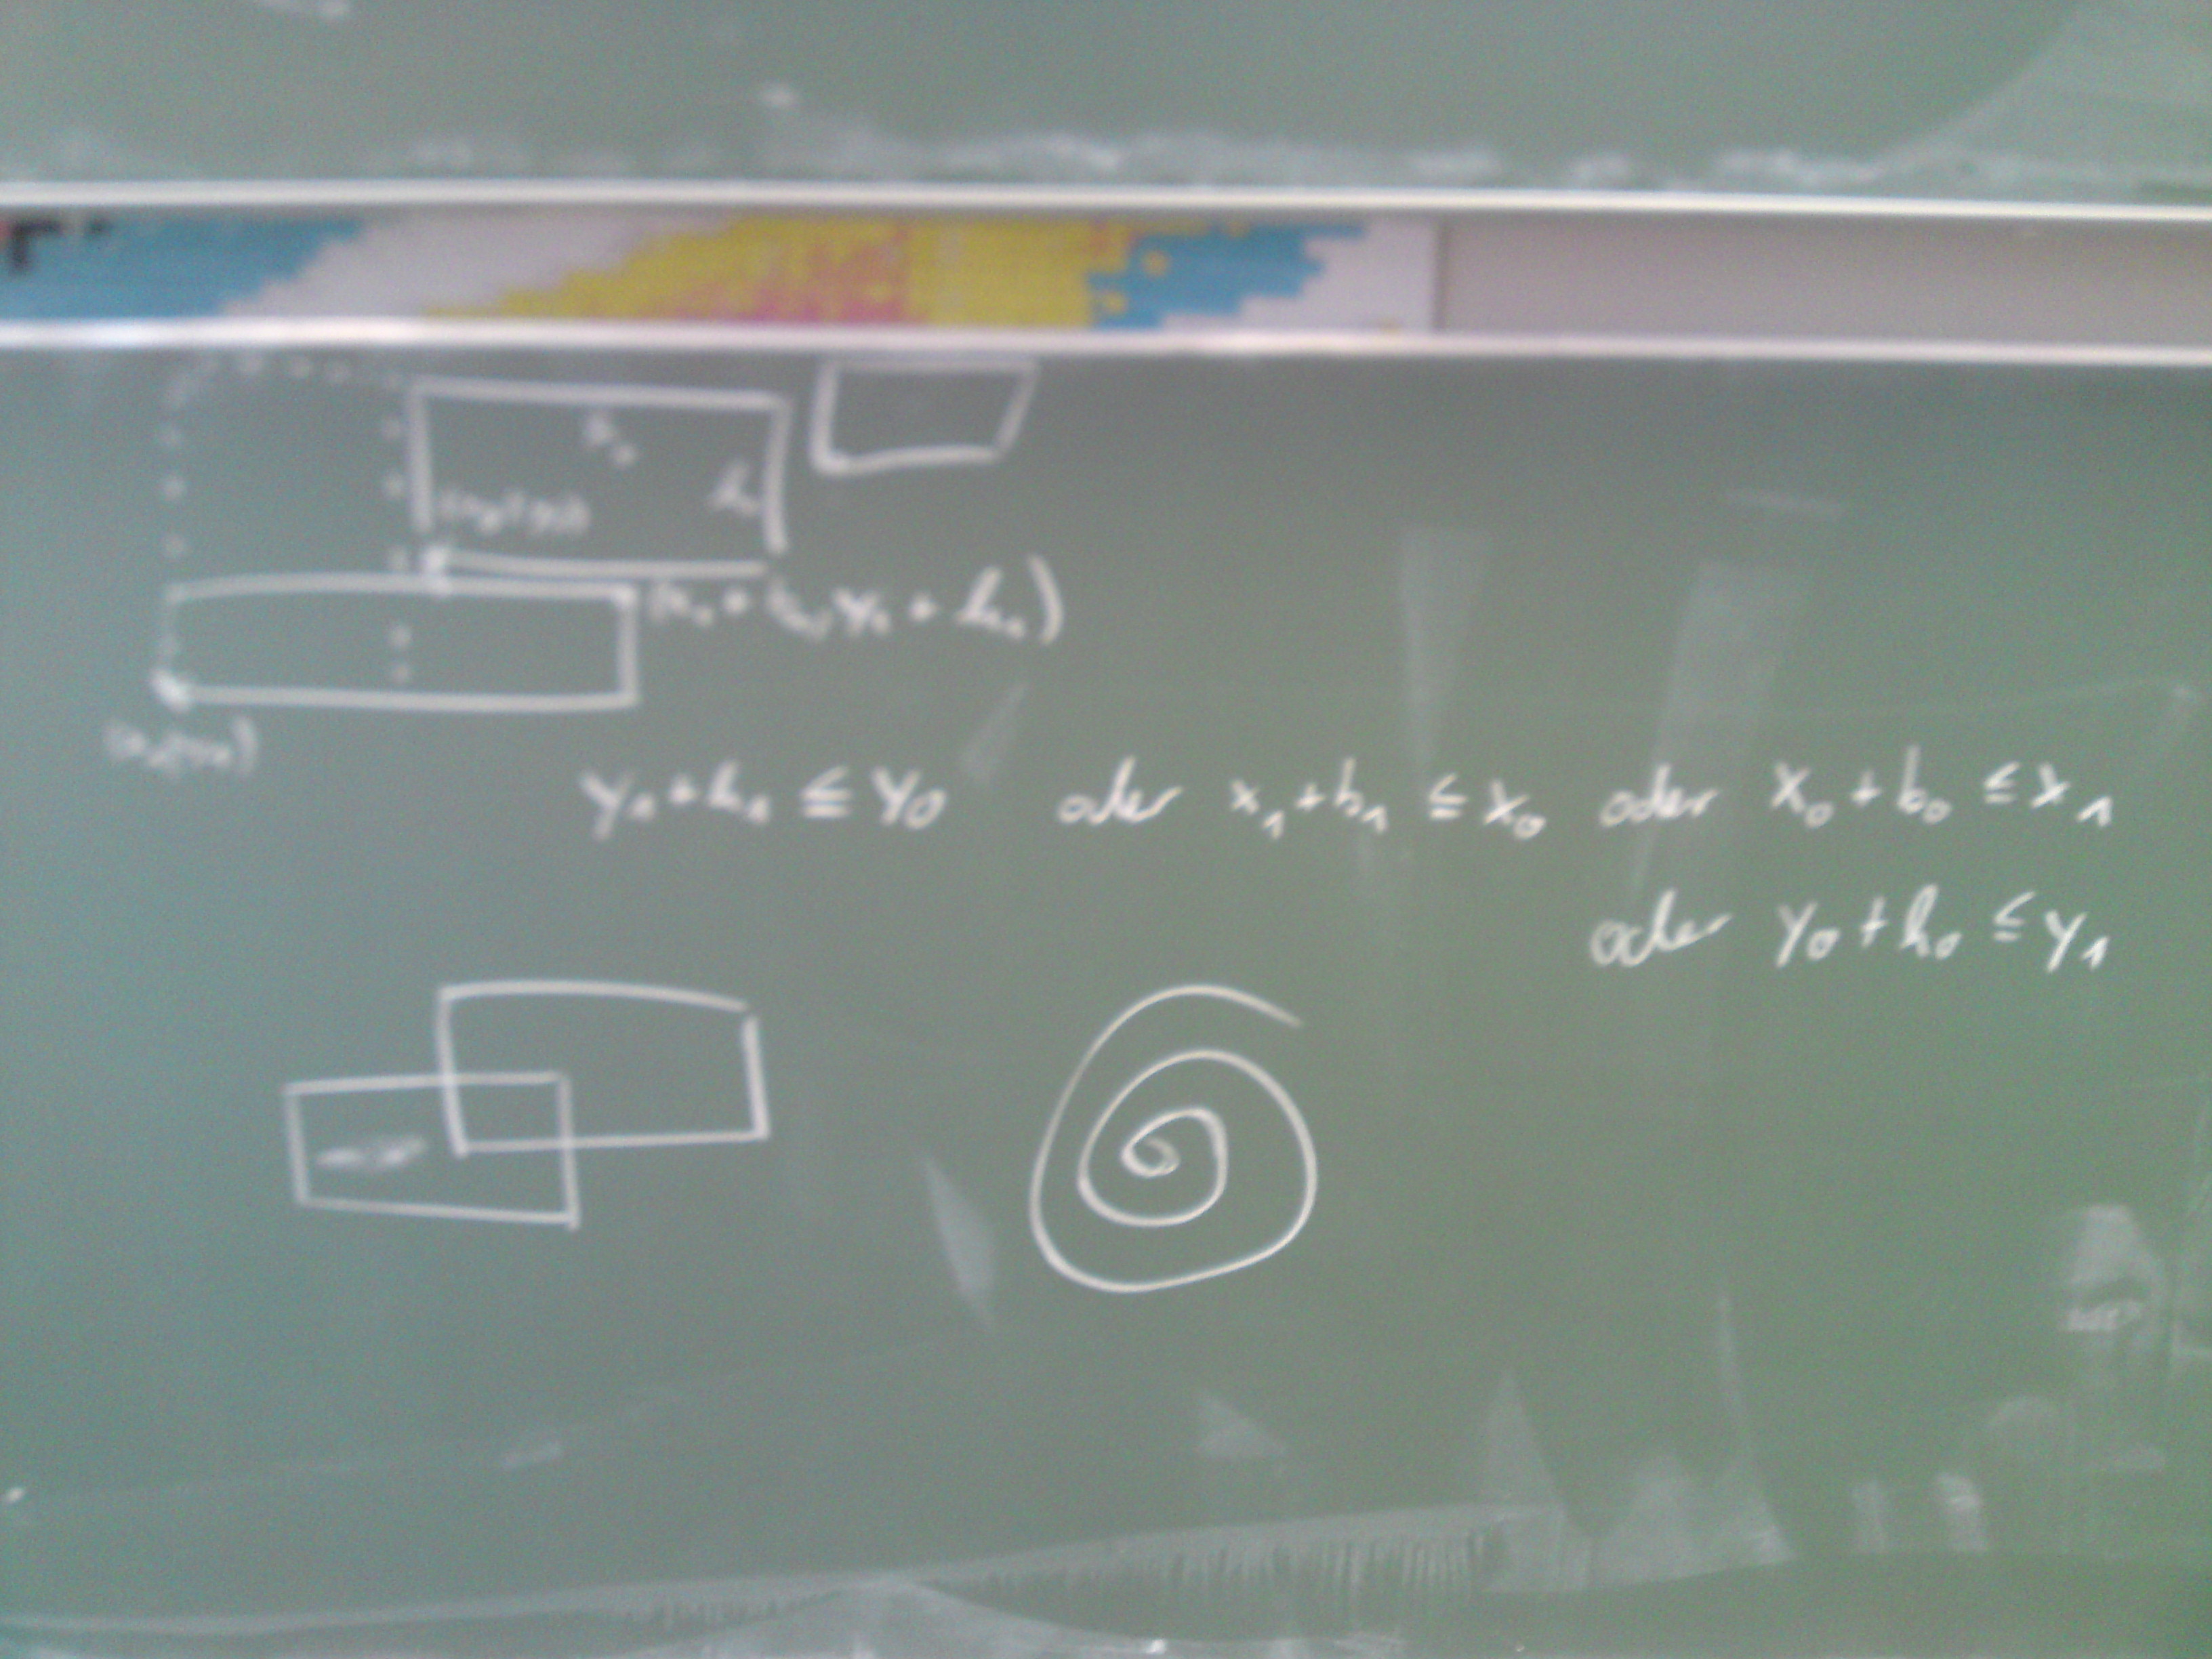 h₀
(x₁ + b₁, y₁ + h₁)
y₁+h₁ ≦ y₀ oder x₁+b₁ ≦ x₀ oder x₀+b₀ ≦ x₁
oder y₀+h₀ ≦ y₁